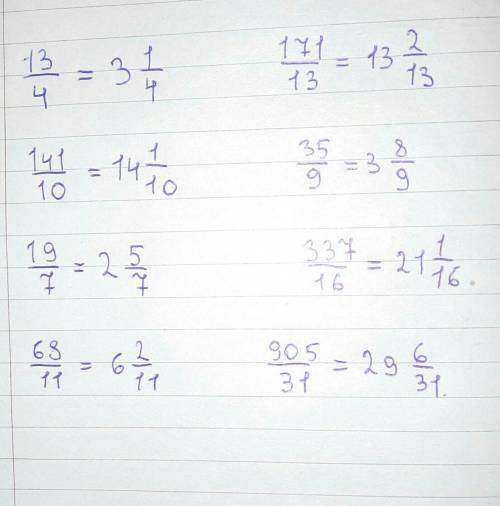 13/4 = 3 1/4
171/13 = 13 2/13
141/10 = 14 1/10
35/9 = 3 8/9
19/7 = 2 5/7
337/16 = 21 1/16.
68/11 = 6 2/11
905/31 = 29 6/31.